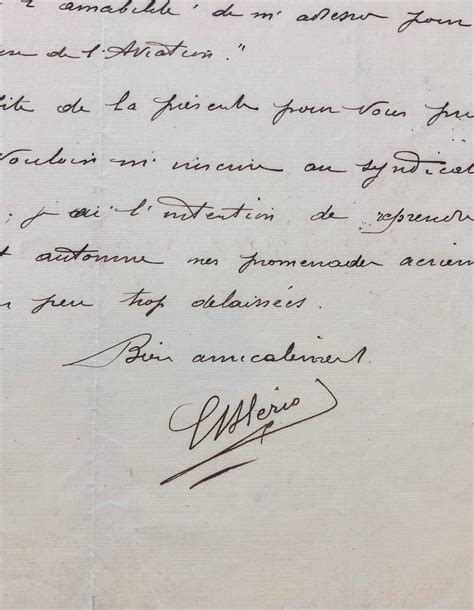 amabilité de m'adresser pour
de l'Aviation."
de la présente pour vous
vouloir m'inscrire au syndicat
; j'ai l'intention de reprendre
automne mes promenades aérien
peu trop délaissées.
Bien amicalement.